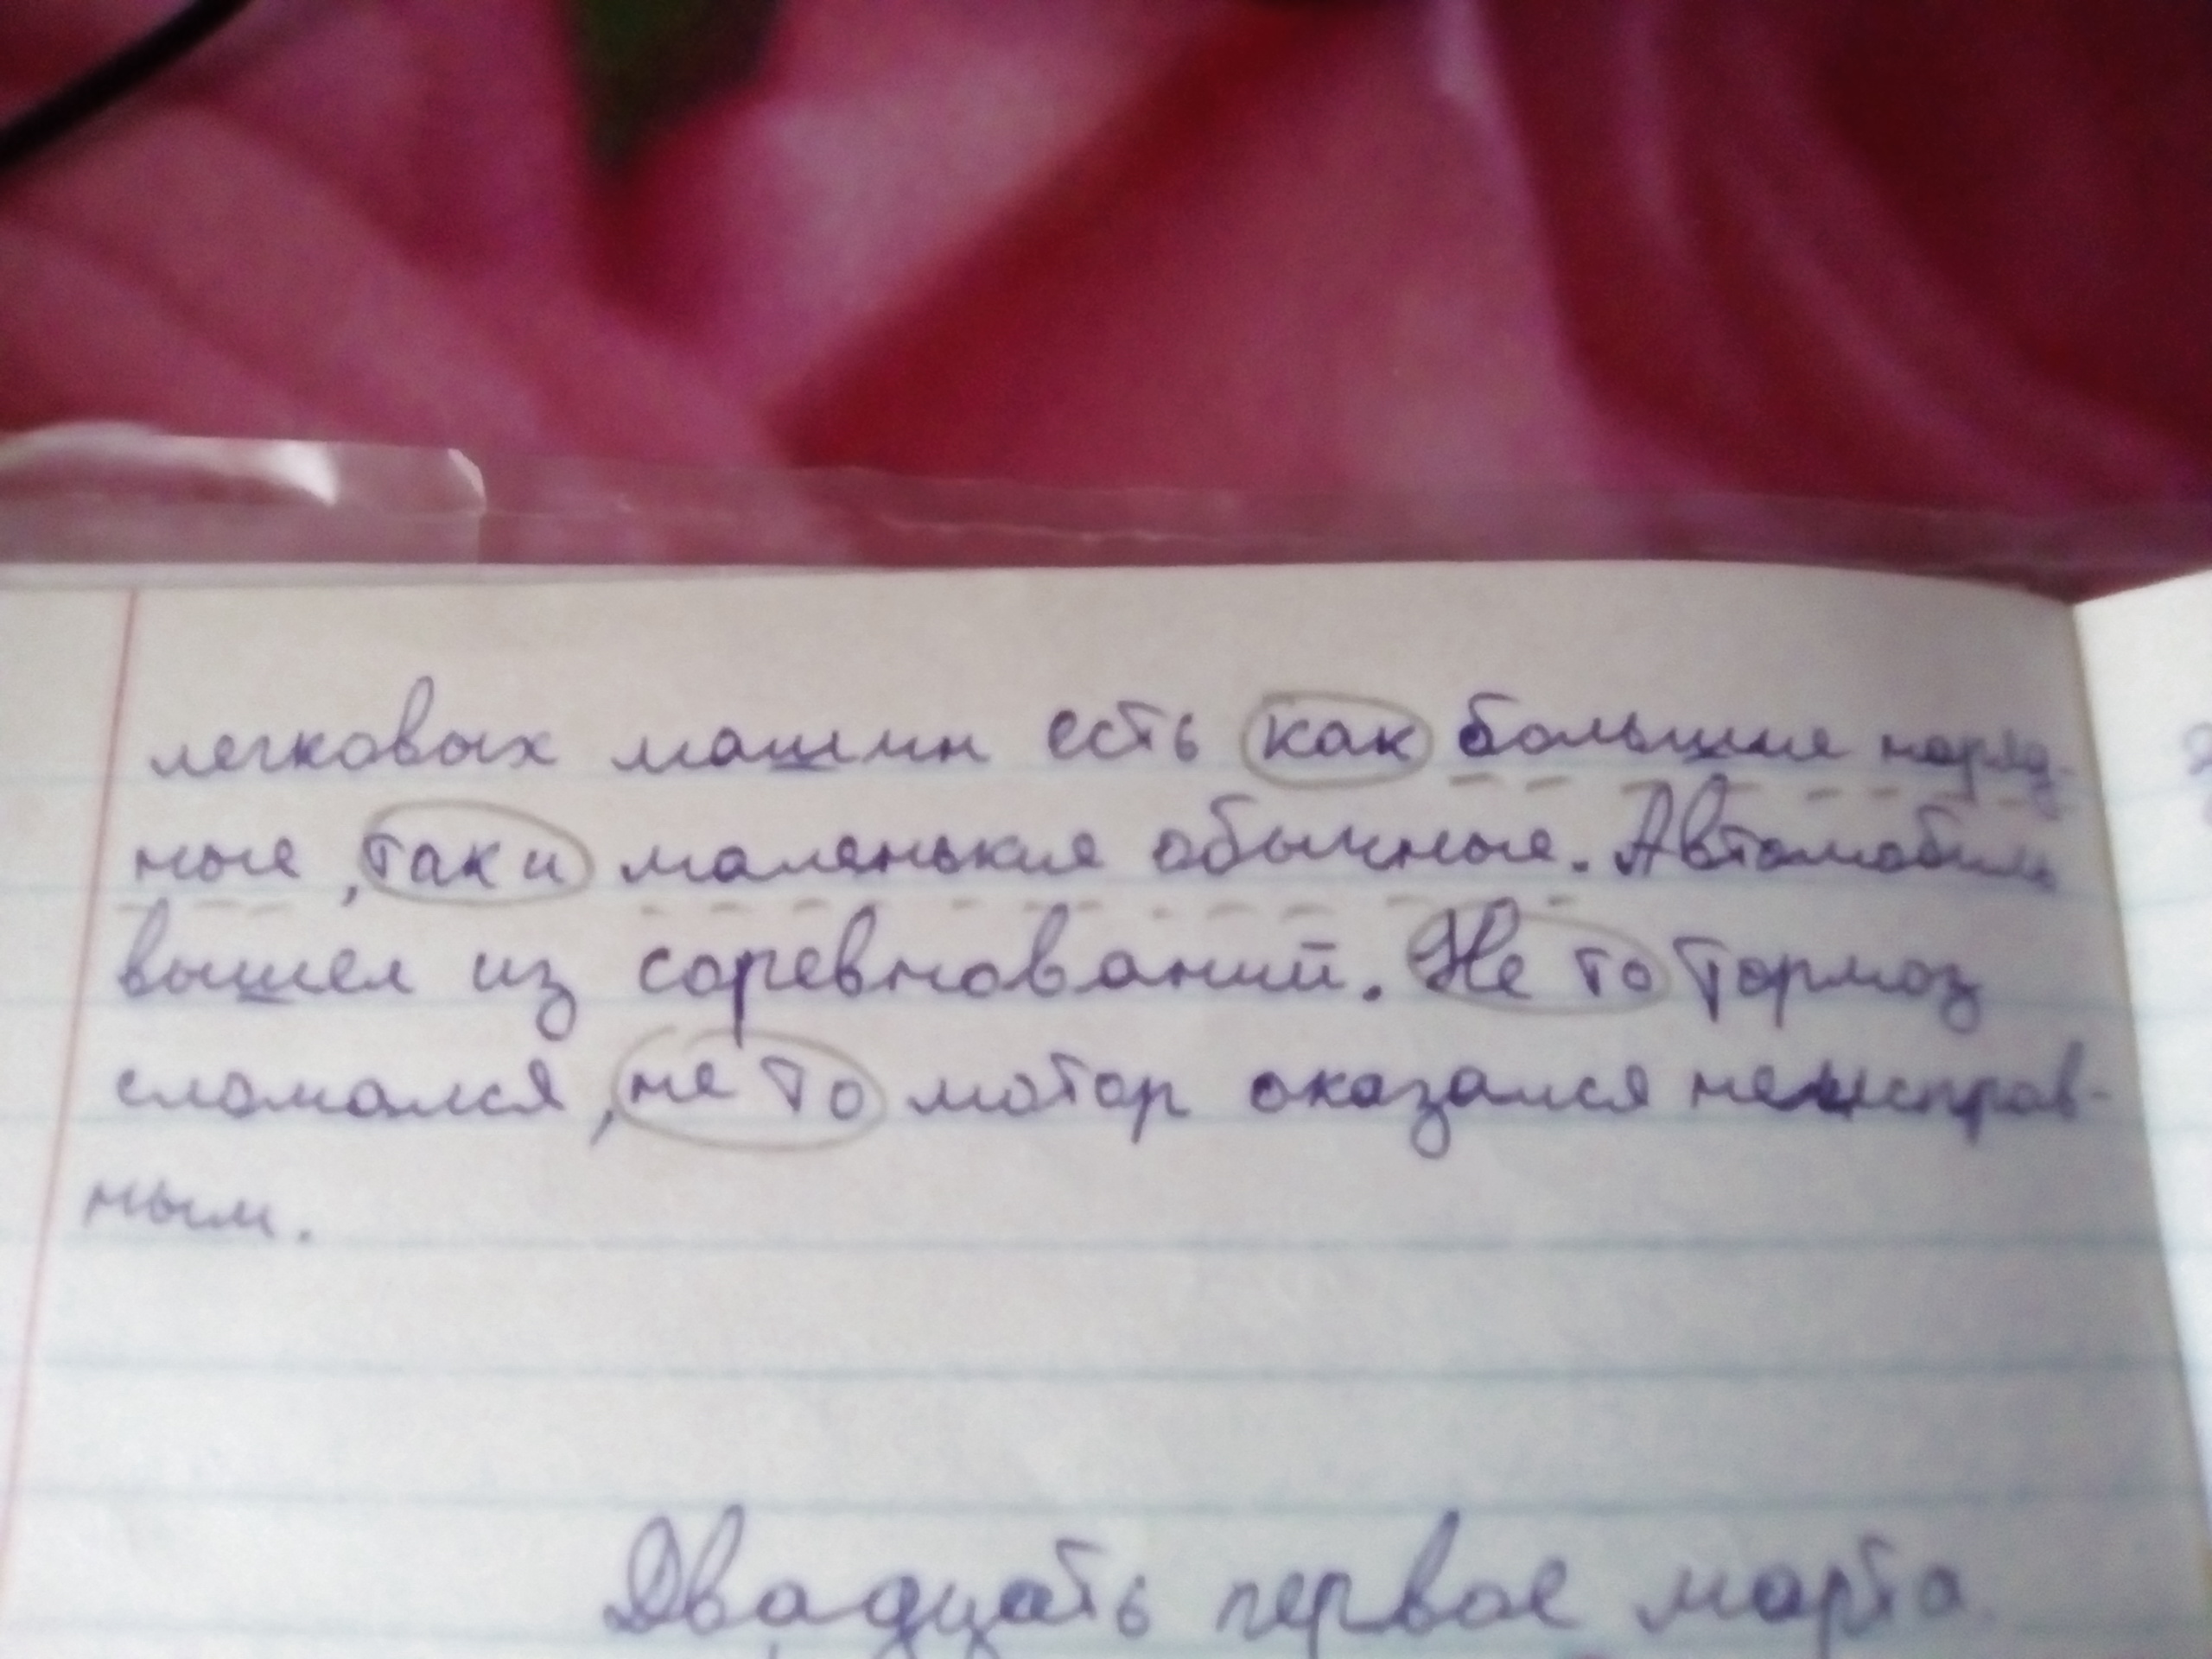 легковых машин есть как большие наряд-
ные, так и маленькие обычные. Автомобиль
вышел из соревнований. Не то тормоз
сломался, не то мотор оказался неисправ-
ным.
Двадцать первое марта